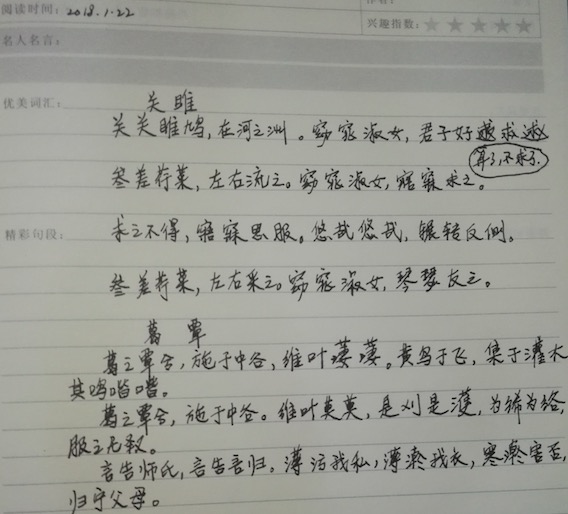 阅读时间：2018.1.22
兴趣指数：★★★★★
名人名言：
优美词汇：
关雎
关关雎鸠，在河之洲。窈窕淑女，君子好
算了，不求了。
参差荇菜，左右流之。窈窕淑女，寤寐求之。
精彩句段：
求之不得，寤寐思服。悠哉悠哉，辗转反侧。
参差荇菜，左右采之。窈窕淑女，琴瑟友之。
葛覃
葛之覃兮，施于中谷，维叶萋萋。黄鸟于飞，集于灌木
其鸣喈喈。
葛之覃兮，施于中谷。维叶莫莫，是刈是濩，为绤为绤，
服之无斁。
言告师氏，言告言归。薄污我私，薄澣我衣，害澣害否，
归宁父母。